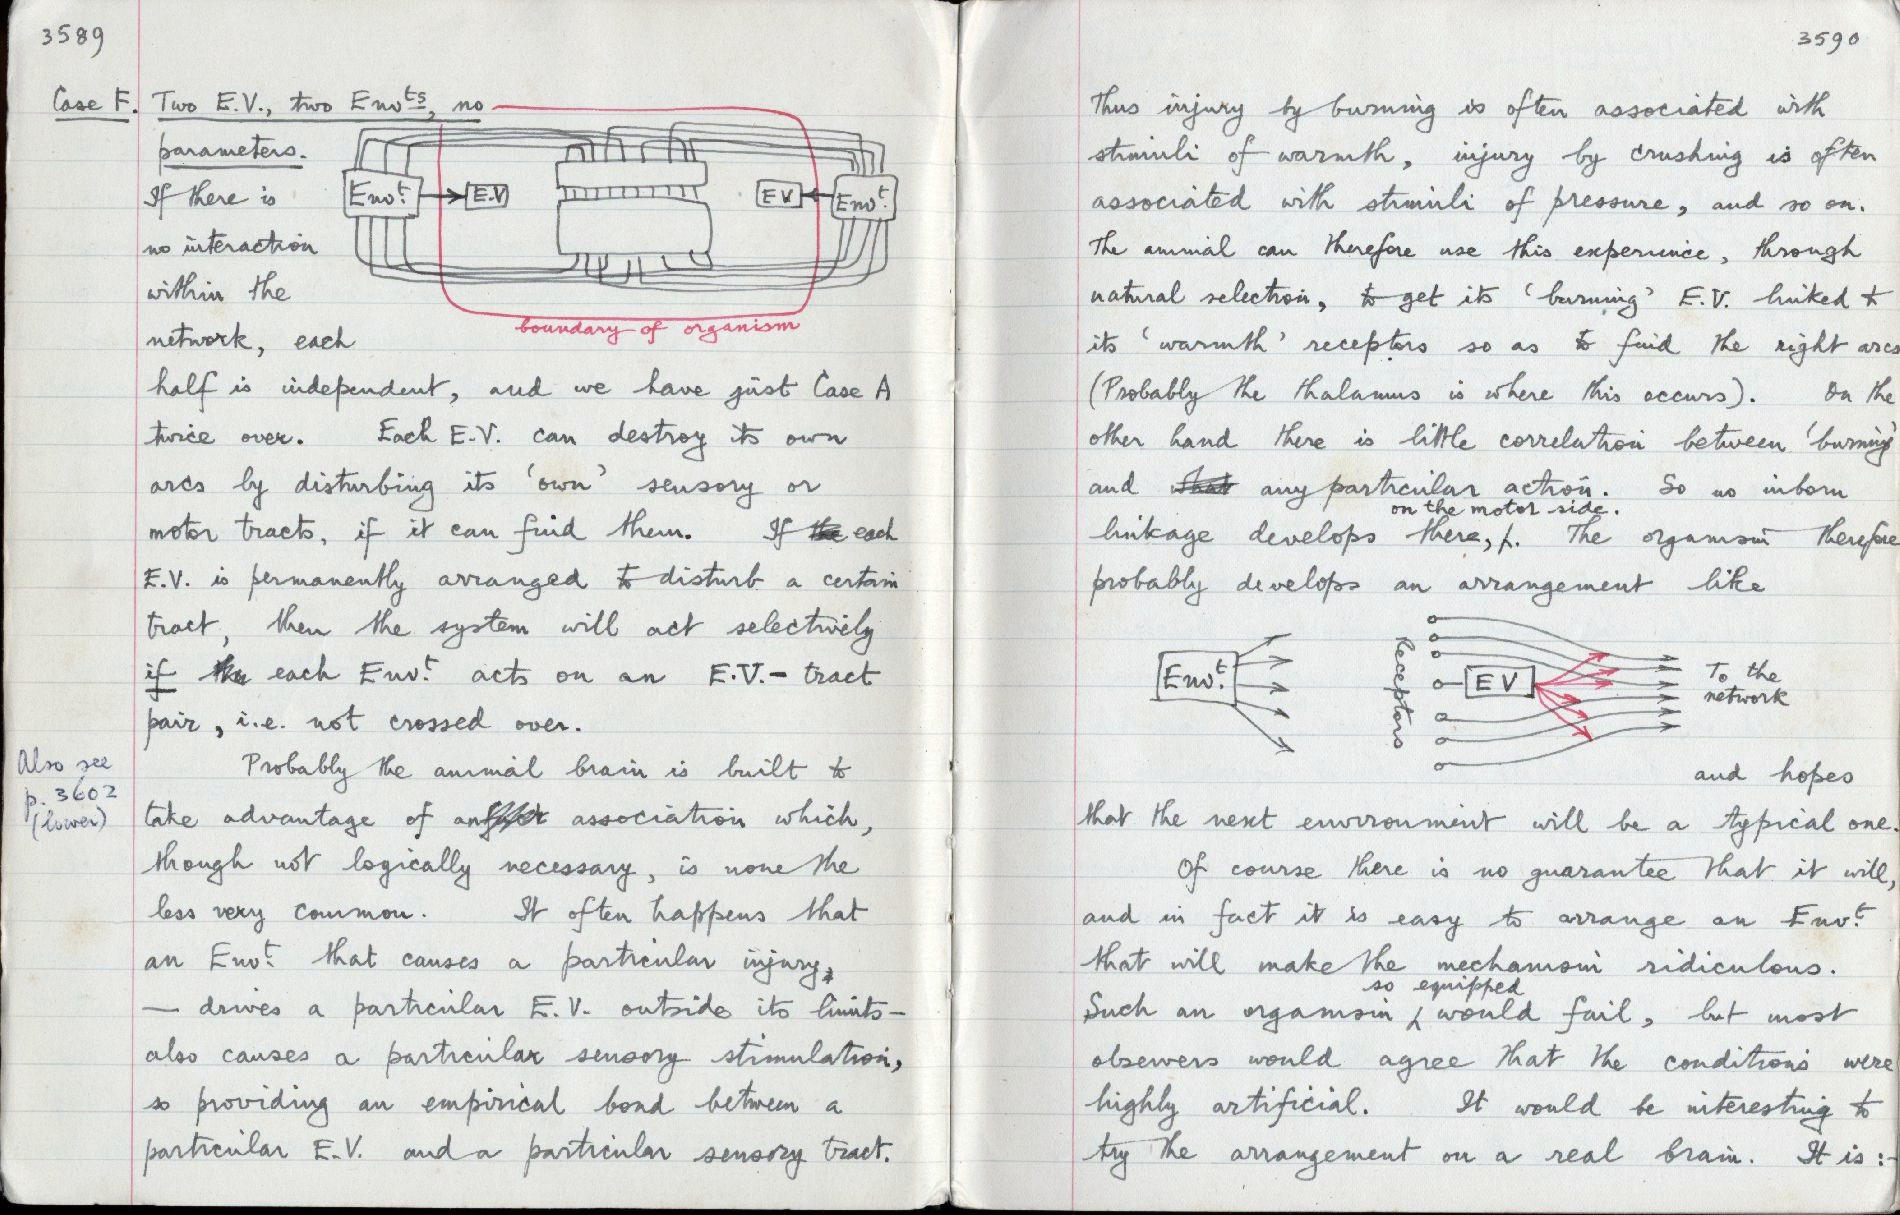 3589
Case F. Two E.V., two Envts, no
parameters.
Envt. E.V EV Envt.
If there is
no interaction
within the
boundary of organism
network, each
half is independent, and we have just Case A
twice over. Each E.V. can destroy its own
arcs by disturbing its 'own' sensory or
motor tracts, if it can find them. If the each
E.V. is permanently arranged to disturb a certain
tract, then the system will act selectively
if the each Envt. acts on an E.V.-tract
pair, i.e. not crossed over.
Also see
p. 3602
(lower)
Probably the animal brain is built to
take advantage of an association which,
though not logically necessary, is none the
less very common. It often happens that
an Envt. that causes a particular injury,
— drives a particular E.V. outside its limits—
also causes a particular sensory stimulation,
so providing an empirical bond between a
particular E.V. and a particular sensory tract.
3590
Thus injury by burning is often associated with
stimuli of warmth, injury by crushing is often
associated with stimuli of pressure, and so on.
The animal can therefore use this experience, through
natural selection, to get its 'burning' E.V. linked to
its 'warmth' receptors so as to find the right arcs
(Probably the thalamus is where this occurs). On the
other hand there is little correlation between 'burning'
and what any particular action. So no inborn
on the motor side.
linkage develops there,⁁. The organism therefore
probably develops an arrangement like
Envt.
Receptors
EV
To the
network
and hopes
that the next environment will be a typical one.
Of course there is no guarantee that it will,
and in fact it is easy to arrange an Envt.
that will make the mechanism ridiculous.
so equipped
Such an organism ⁁ would fail, but most
observers would agree that the conditions were
highly artificial. It would be interesting to
try the arrangement on a real brain. It is :-